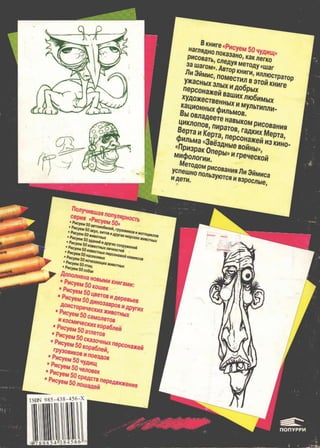 В книге «Рисуем 50 чудищ»
наглядно показано, как легко
рисовать, следуя методу «шаг
за шагом». Автор книги, иллюстратор
Ли Эймис, поместил в этой книге
ужасных злых и добрых
персонажей ваших любимых
художественных и мультипли-
кационных фильмов.
Вы овладеете навыком рисования
циклопов, пиратов, гадких Мерта,
Верта и Керта, персонажей из кино-
фильма «Звёздные войны»,
«Призрак Оперы» и греческой
мифологии.
Методом рисования Ли Эймиса
успешно пользуются и взрослые,
и дети.
Получившая популярность
серия «Рисуем 50»
• Рисуем 50 автомобилей, грузовиков и мотоциклов
• Рисуем 50 акул, китов и других морских животных
• Рисуем 50 животных
• Рисуем 50 зданий и других сооружений
• Рисуем 50 известных личностей
• Рисуем 50 известных персонажей комиксов
• Рисуем 50 насекомых
• Рисуем 50 исчезающих животных
• Рисуем 50 птиц
• Рисуем 50 собак
Дополнена новыми книгами:
• Рисуем 50 кошек
• Рисуем 50 цветов и деревьев
• Рисуем 50 динозавров и других
доисторических животных
• Рисуем 50 самолетов
и космических кораблей
• Рисуем 50 атлетов
• Рисуем 50 сказочных персонажей
• Рисуем 50 кораблей,
грузовиков и поездов
• Рисуем 50 чудищ
• Рисуем 50 человек
• Рисуем 50 средств передвижения
• Рисуем 50 лошадей
ISBN 985-438-456-X
9 789854 384566
ПОПУРРИ